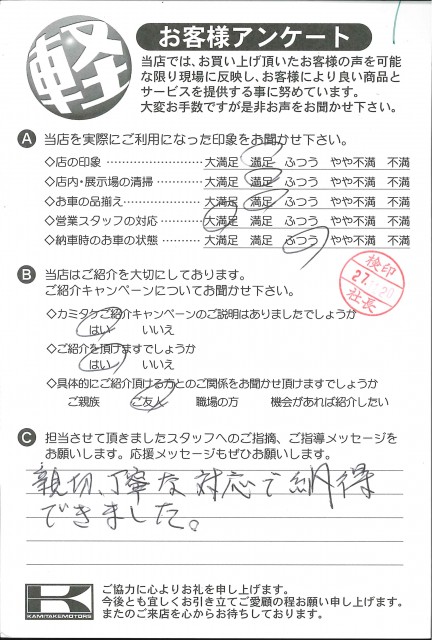 軽
お客様アンケート
当店では、お買い上げ頂いたお客様の声を可能
な限り現場に反映し、お客様により良い商品と
サービスを提供する事に努めています。
大変お手数ですが是非お声をお聞かせ下さい。
A 当店を実際にご利用になった印象をお聞かせ下さい。
◇店の印象 ………………… 大満足 満足 ふつう やや不満 不満
◇店内・展示場の清掃 ………… 大満足 満足 ふつう やや不満 不満
◇お車の品揃え ……………… 大満足 満足 ふつう やや不満 不満
◇営業スタッフの対応 ………… 大満足 満足 ふつう やや不満 不満
◇納車時のお車の状態 ………… 大満足 満足 ふつう やや不満 不満
検印
社長
B 当店はご紹介を大切にしております。
ご紹介キャンペーンについてお聞かせ下さい。
◇カミタケご紹介キャンペーンのご説明はありましたでしょうか
はい いいえ
◇ご紹介を頂けますでしょうか
はい いいえ
◇具体的にご紹介頂ける方とのご関係をお聞かせ頂けますでしょうか
ご親族 ご友人 職場の方 機会があれば紹介したい
C 担当させて頂きましたスタッフへのご指摘、ご指導メッセージを
お願いします。応援メッセージもぜひお願いします。
親切、丁寧な対応で納得
できました。
K
KAMITAKEMOTORS
ご協力に心よりお礼を申し上げます。
今後とも宜しくお引き立てご愛顧の程お願い申し上げます。
またのご来店を心からお待ちしております。